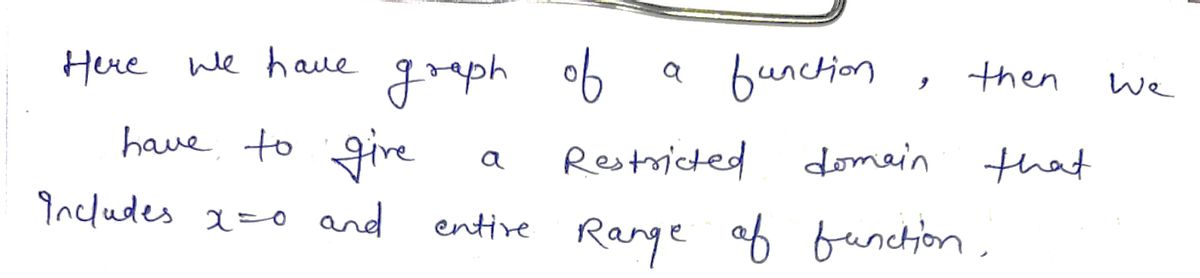 Here we have graph of a function, then we
have to give a Restricted domain that
Includes x=0 and entire Range of function.